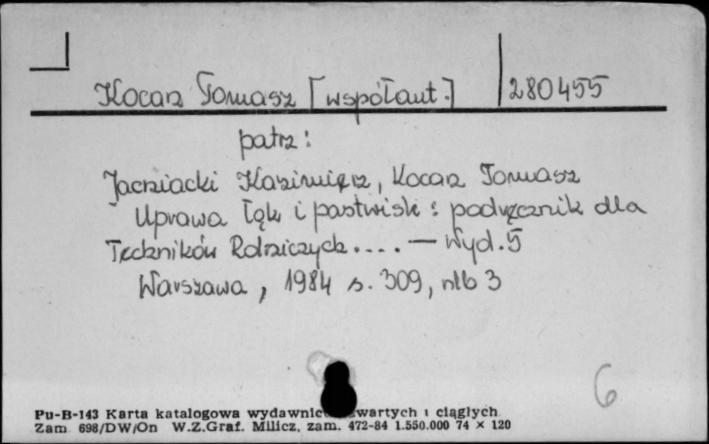 Kocan Tomasz [współaut.] 280455
patrz:
Kazimierz, Kocan Tomasz
Uprawa łąk i pastwisk : podręcznik dla
Techników Rolniczych .... — Wyd. 5
Warszawa, 1984 s. 309, nlb 3
6
Pu-B-143 Karta katalogowa wydawnic wartych i ciągłych
Zam 698/DW/On W.Z.Graf. Milicz, zam. 472-84 1.550.000 74 × 120